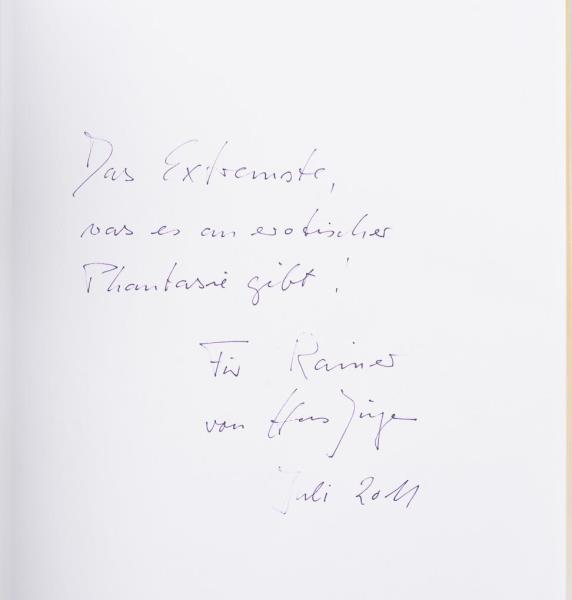 Das Extremste,
was es an erotischer
Phantasie gibt!
Für Rainer
von Hans Jürgen
Juli 2011